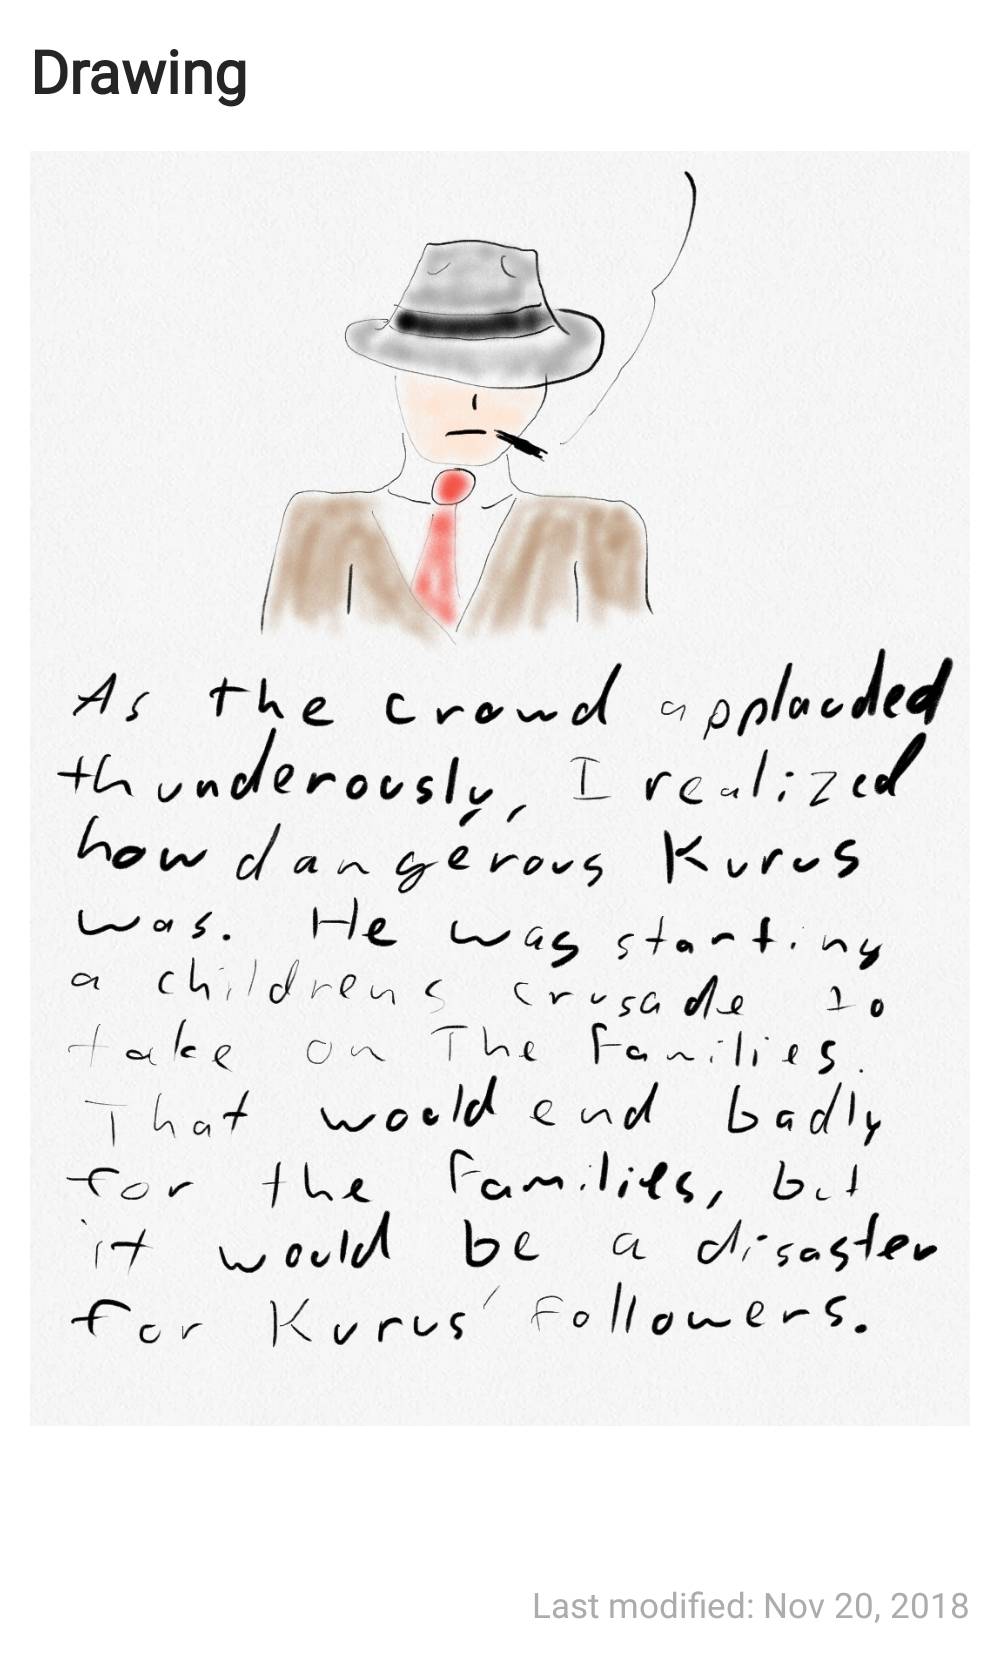 Drawing
As the crowd applauded
thunderously, I realized
how dangerous Kurus
was. He was starting
a childrens crusade to
take on The Families.
That would end badly
for the families, but
it would be a disaster
for Kurus' followers.
Last modified: Nov 20, 2018